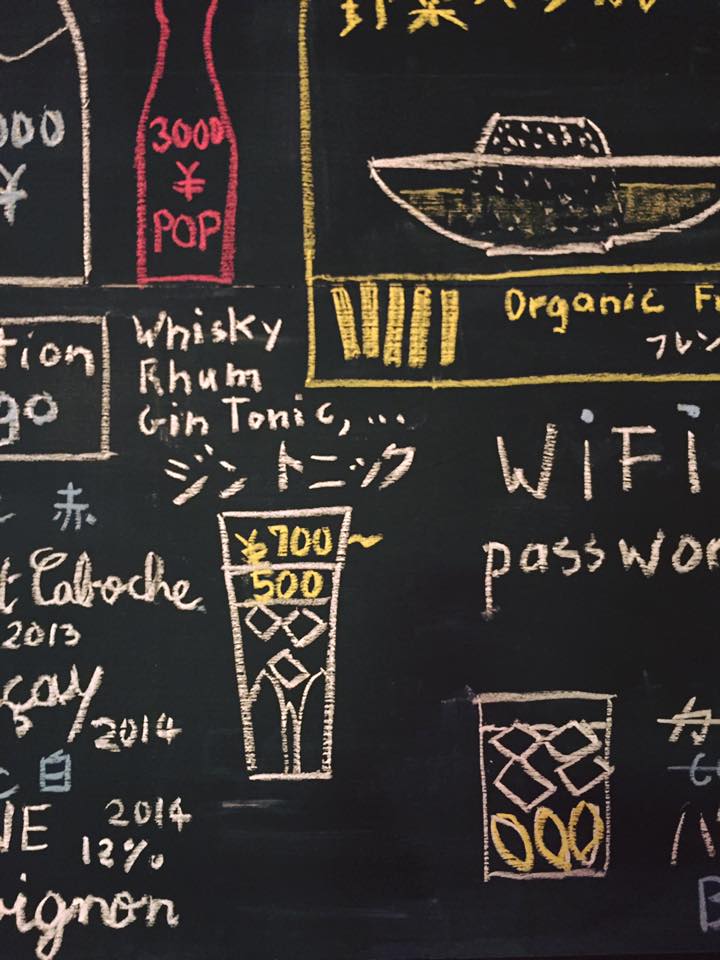 野菜
000
¥
3000
¥
POP
Organic F
フレン
tion
go
Whisky
Rhum
Gin Tonic, ...
ジントニック
¥700~
500
WiFi
passwor
赤
t Caboche
2013
çay
2014
白
NE 2014
12%
vignon
カ
B